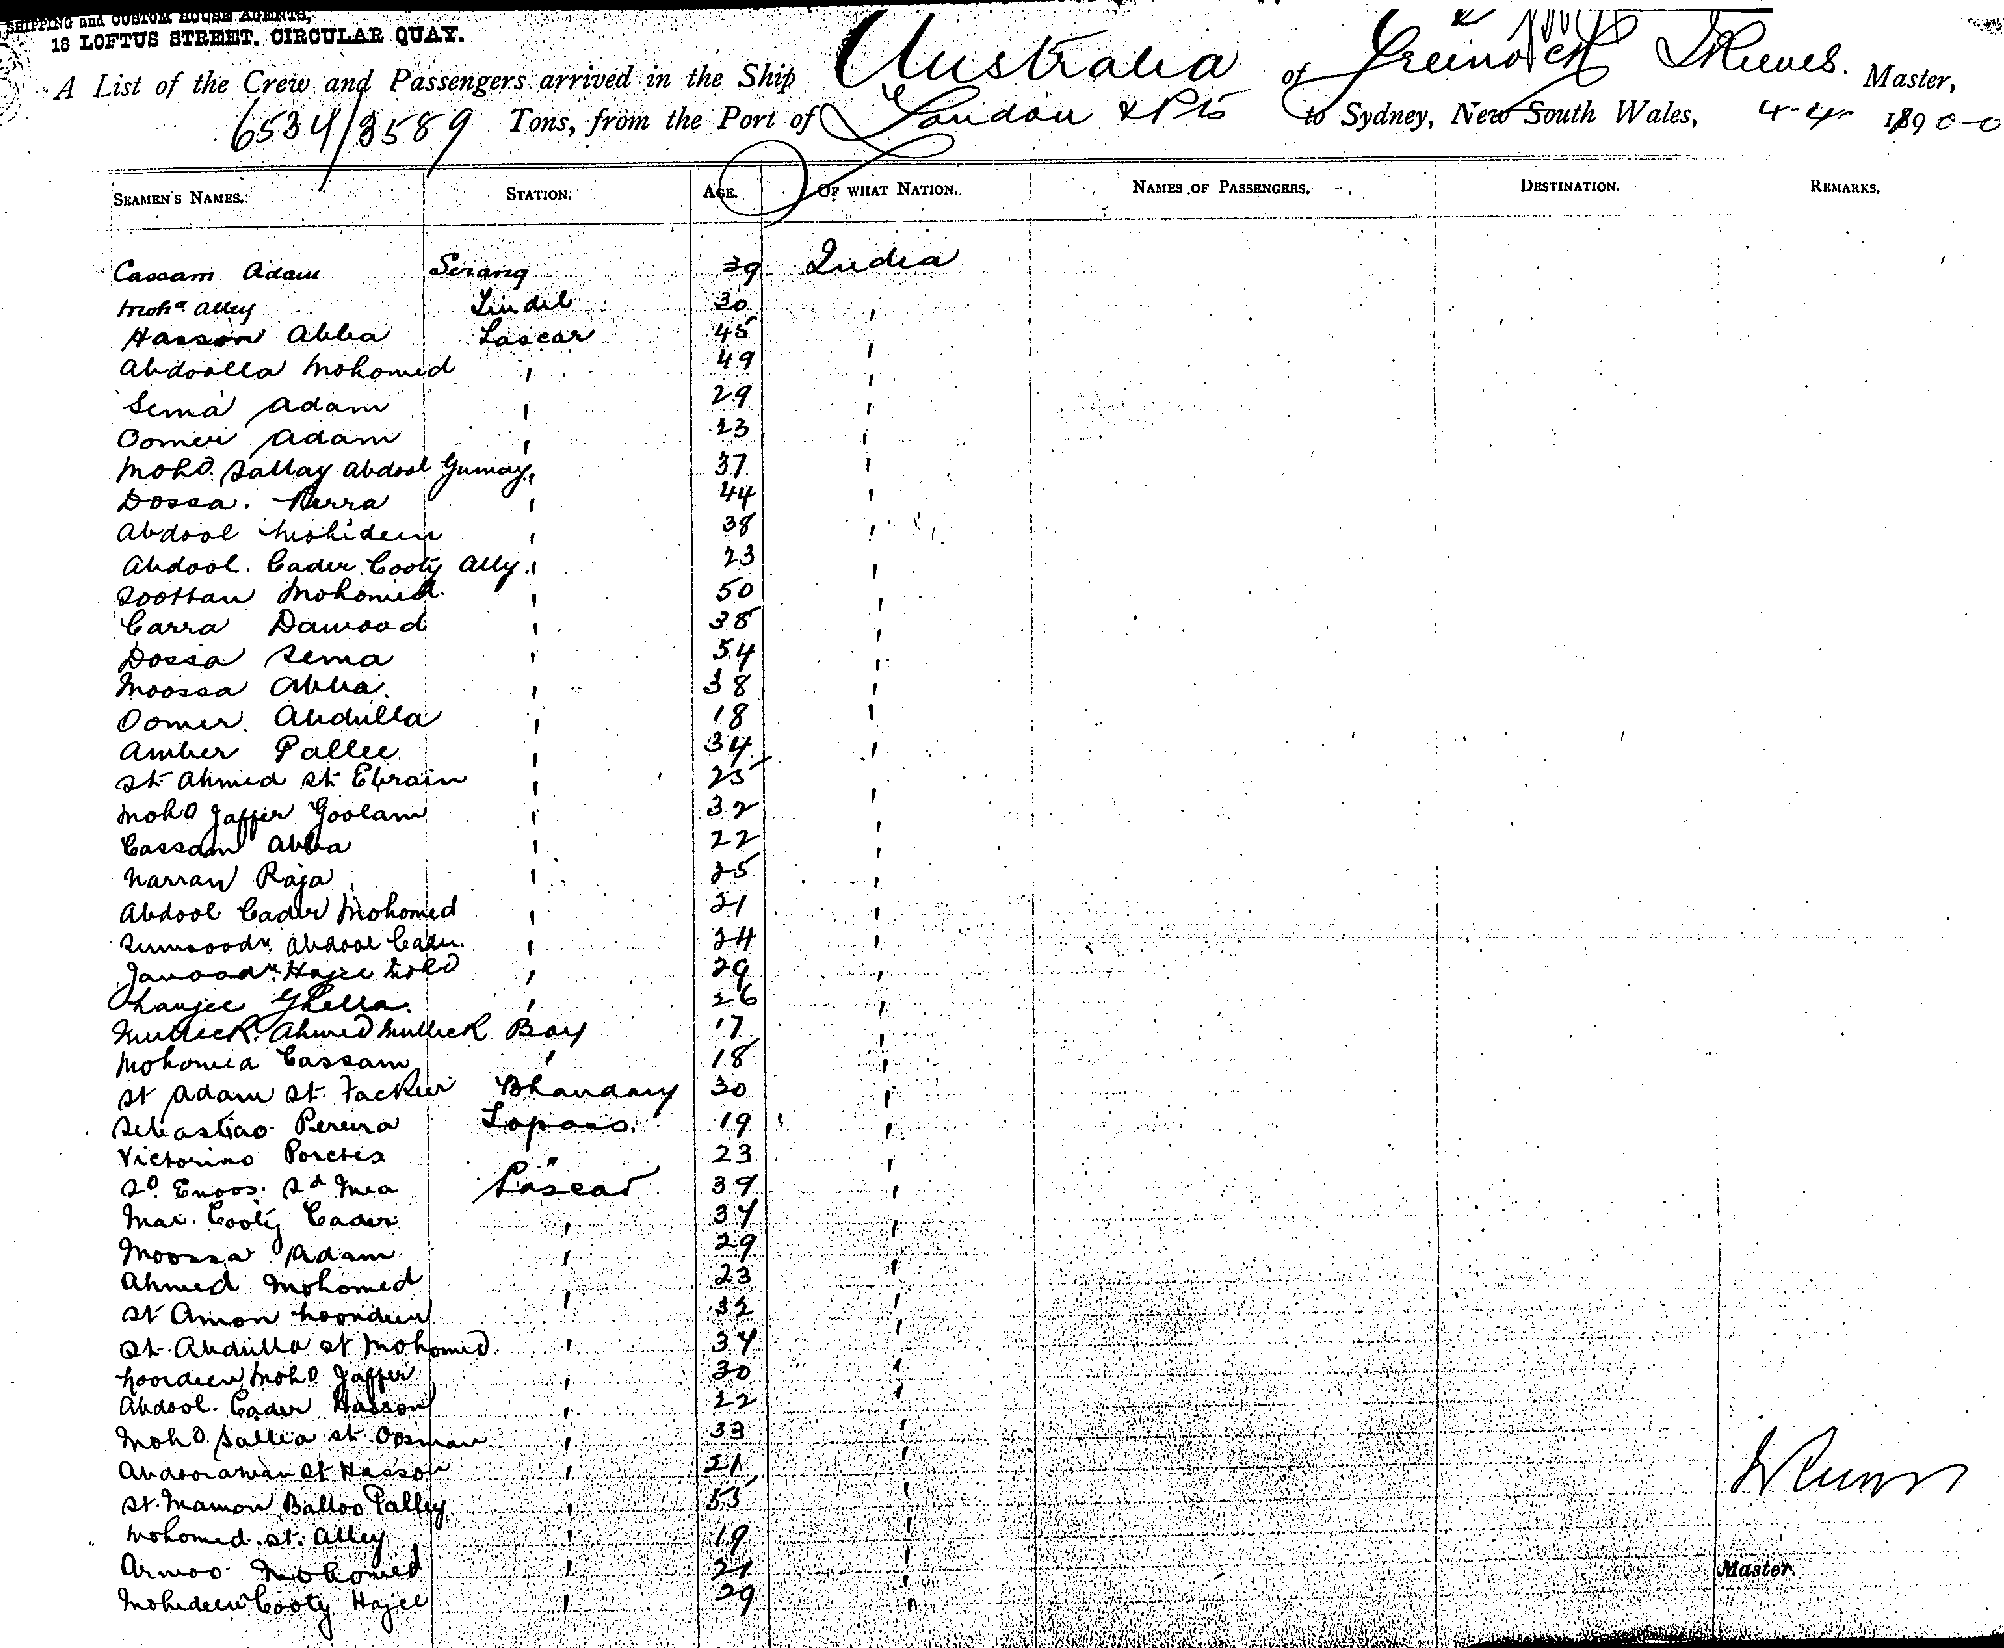 SHIPPING and CUSTOM HOUSE AGENTS,
18 LOFTUS STREET, CIRCULAR QUAY.
A List of the Crew and Passengers arrived in the Ship Australia of Greenock Master,
6534/3589 Tons, from the Port of London & Pts to Sydney, New South Wales, 4-4- 1890
SEAMEN'S NAMES. STATION. AGE. OF WHAT NATION. NAMES OF PASSENGERS. DESTINATION. REMARKS.
Cassam Adam Serang 39 India
Mohd Alley Tindel 30 "
Hasson Abba Lascar 45 "
Abdoolla Mohomed " 49 "
Sema Adam " 29 "
Oomer Adam " 23 "
Mohd Sallay Abdool Gumay " 37 "
Dossa 44 "
Abdool Mohideen " 38 "
Abdool Cader Cooty Ally " 23 "
Mohomed " 50 "
Carra Dawood " 38 "
Dossa Sema " 54 "
Moossa Abba " 38 "
Oomer Abdulla " 18 "
Amber Pallee " 34 "
St Ahmed St Ebraim " 25 "
Mohd Jaffer Goolam " 32 "
Cassam Abba " 22 "
Narran Raja " 25 "
Abdool Cader Mohomed " 21 "
Abdool Cader " 24 "
Hajee Mohd " 29 "
Ghella " 26 "
Mulleck Ahmed Mulleck Boy 17 "
Cassam " 18 "
St Adam St Fackir Bhandary 30 "
Sebastiao Pereira Topass 19 "
Victorino " 23 "
Sd Enoos Sd Mea Lascar 39 "
Cooty Cader " 34 "
Moossa Adam " 29 "
Ahmed Mohomed " 23 "
St Amon Noordeen " 32 "
St Abdulla St Mohomed " 34 "
Noordeen Mohd Jaffer " 30 "
Abdool Cader Hasson " 22 "
Mohd Sallia St Oosman " 33 "
St Hasson " 21 "
St Mamon Balloo Palley " "
Mohomed St Alley " 19 "
Armoo Mohomed " 21 "
Mohideen Cooty Hajee " 29 "
Master.